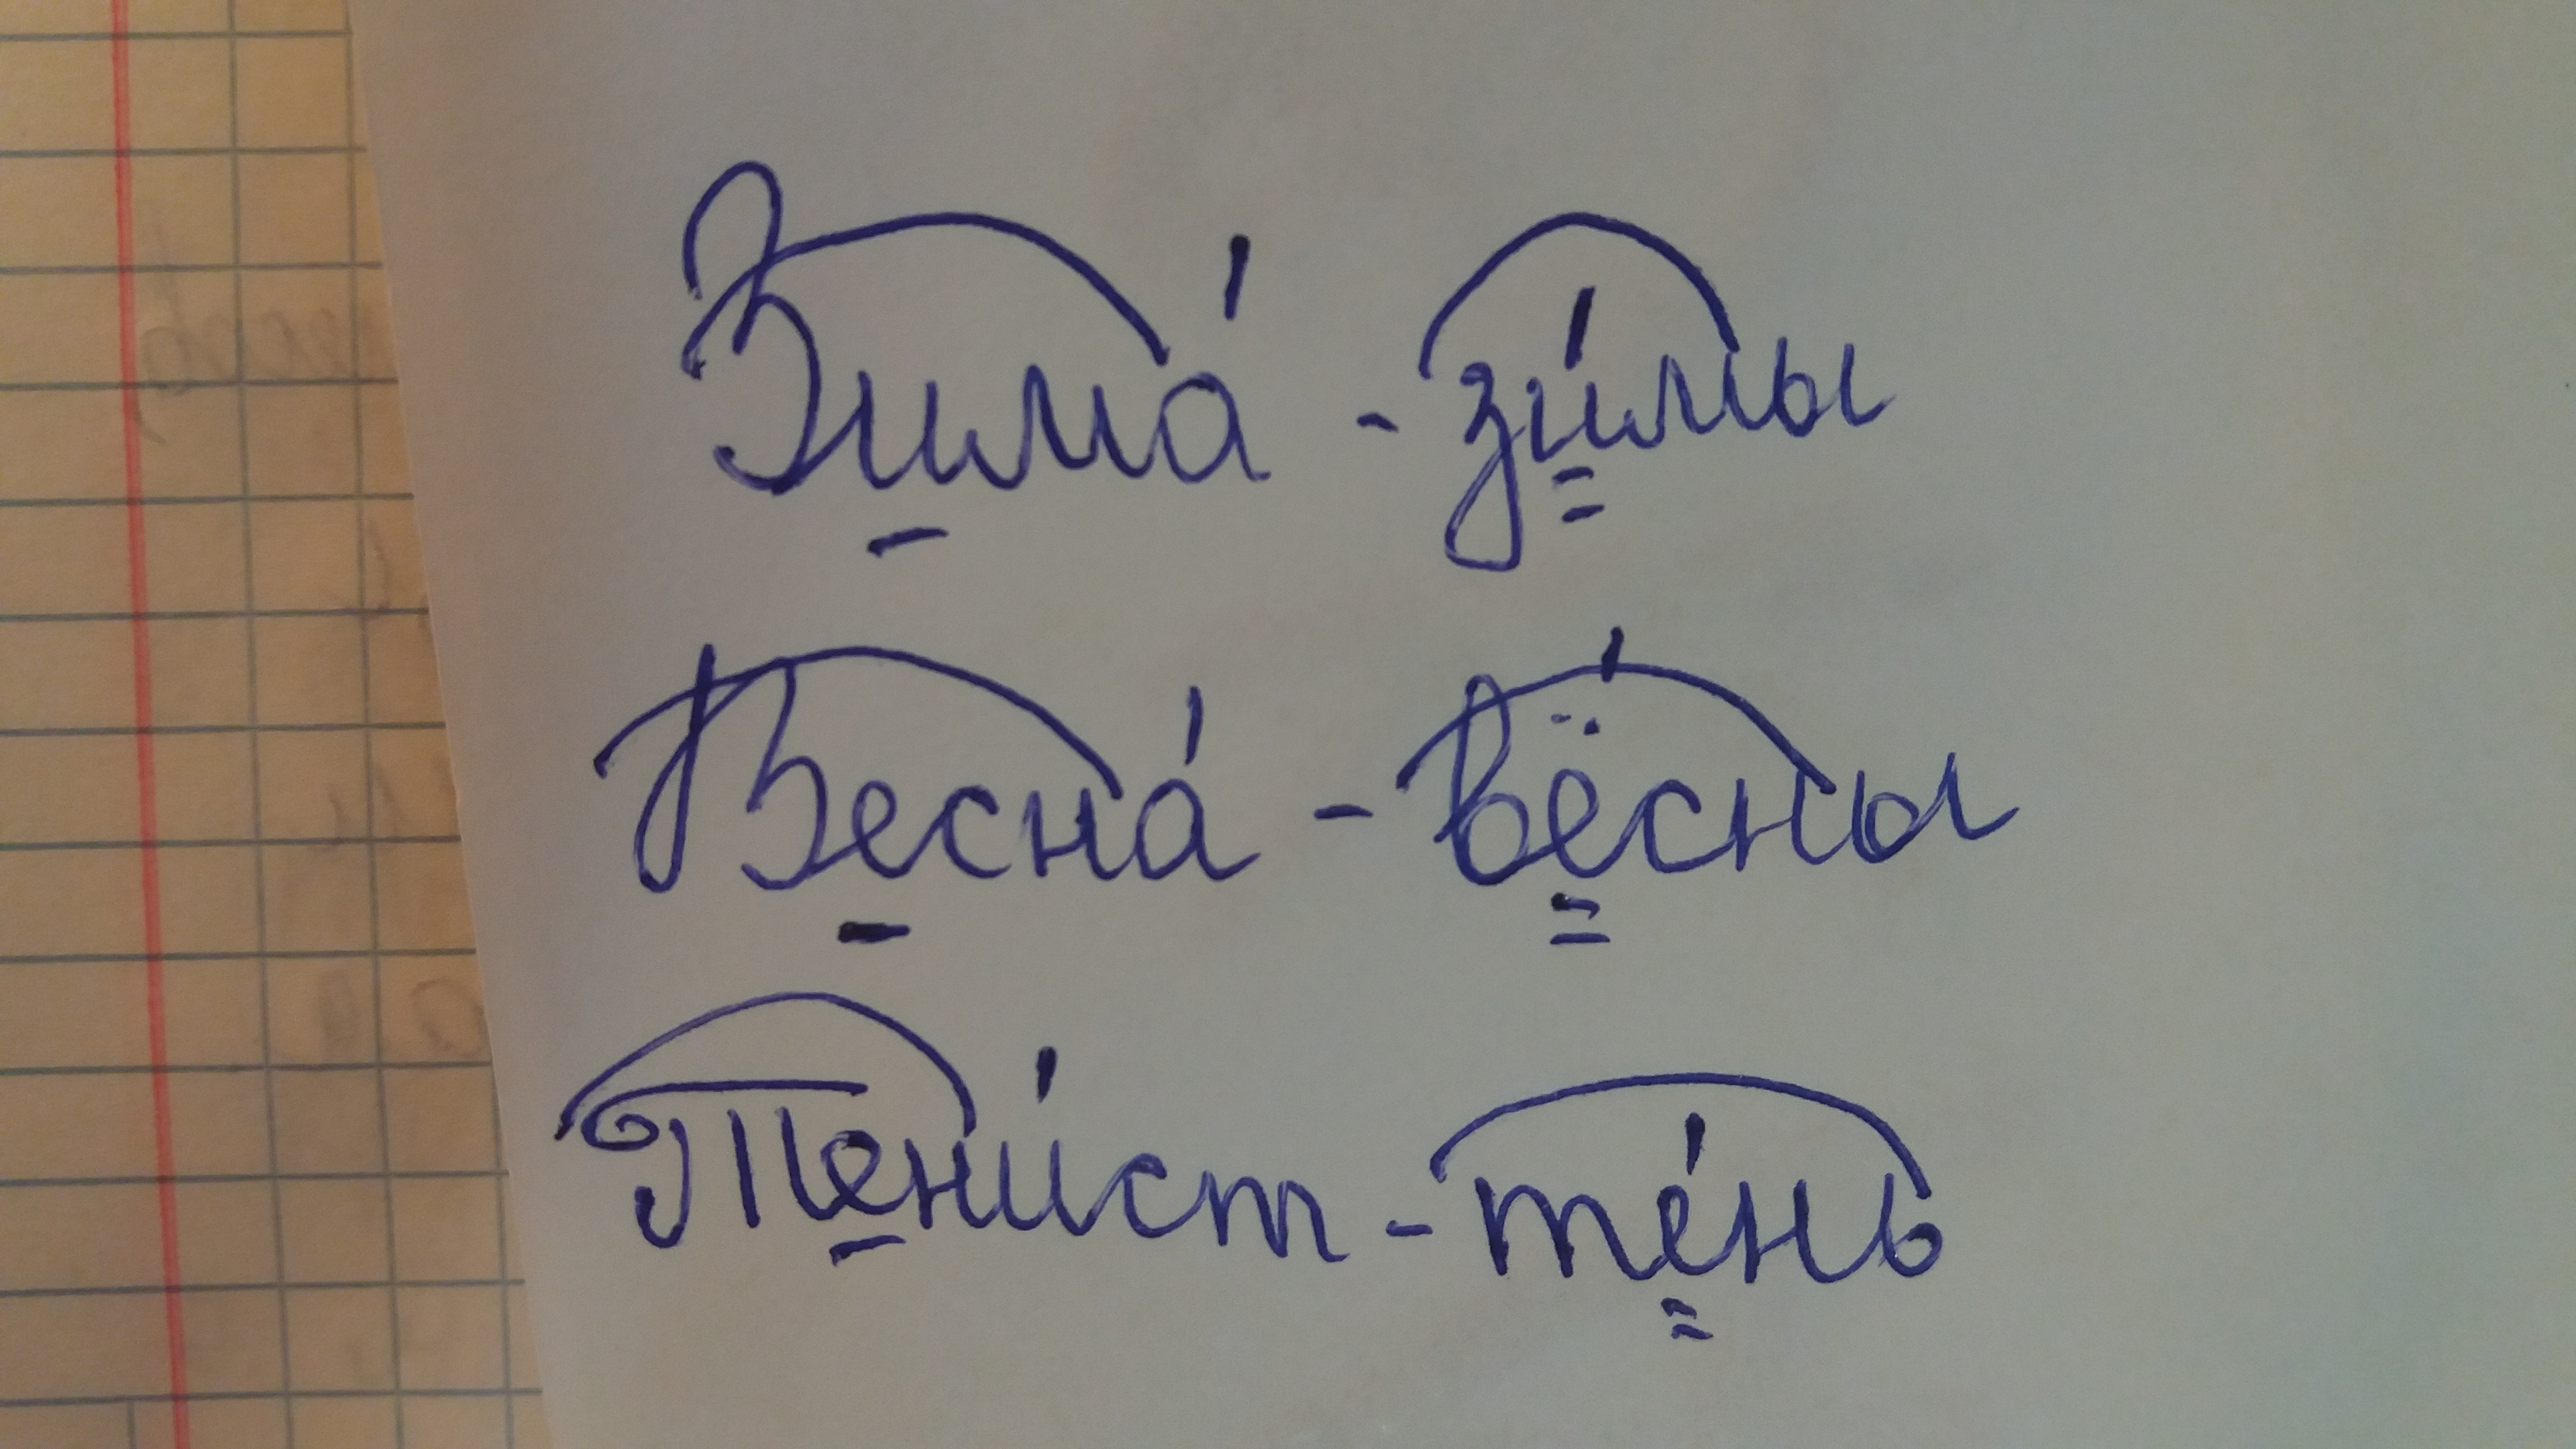 Зима́ - зи́мы
Весна́ - вёсны
Тени́ст - те́нь